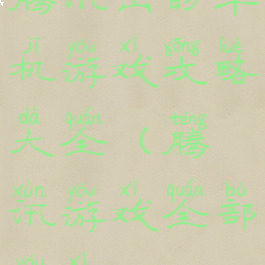 腾讯出的单
jī yóu xì gōng lüè
机游戏攻略
dà quán téng
大全（腾
xùn yóu xì quán bù
讯游戏全部
yóu xì